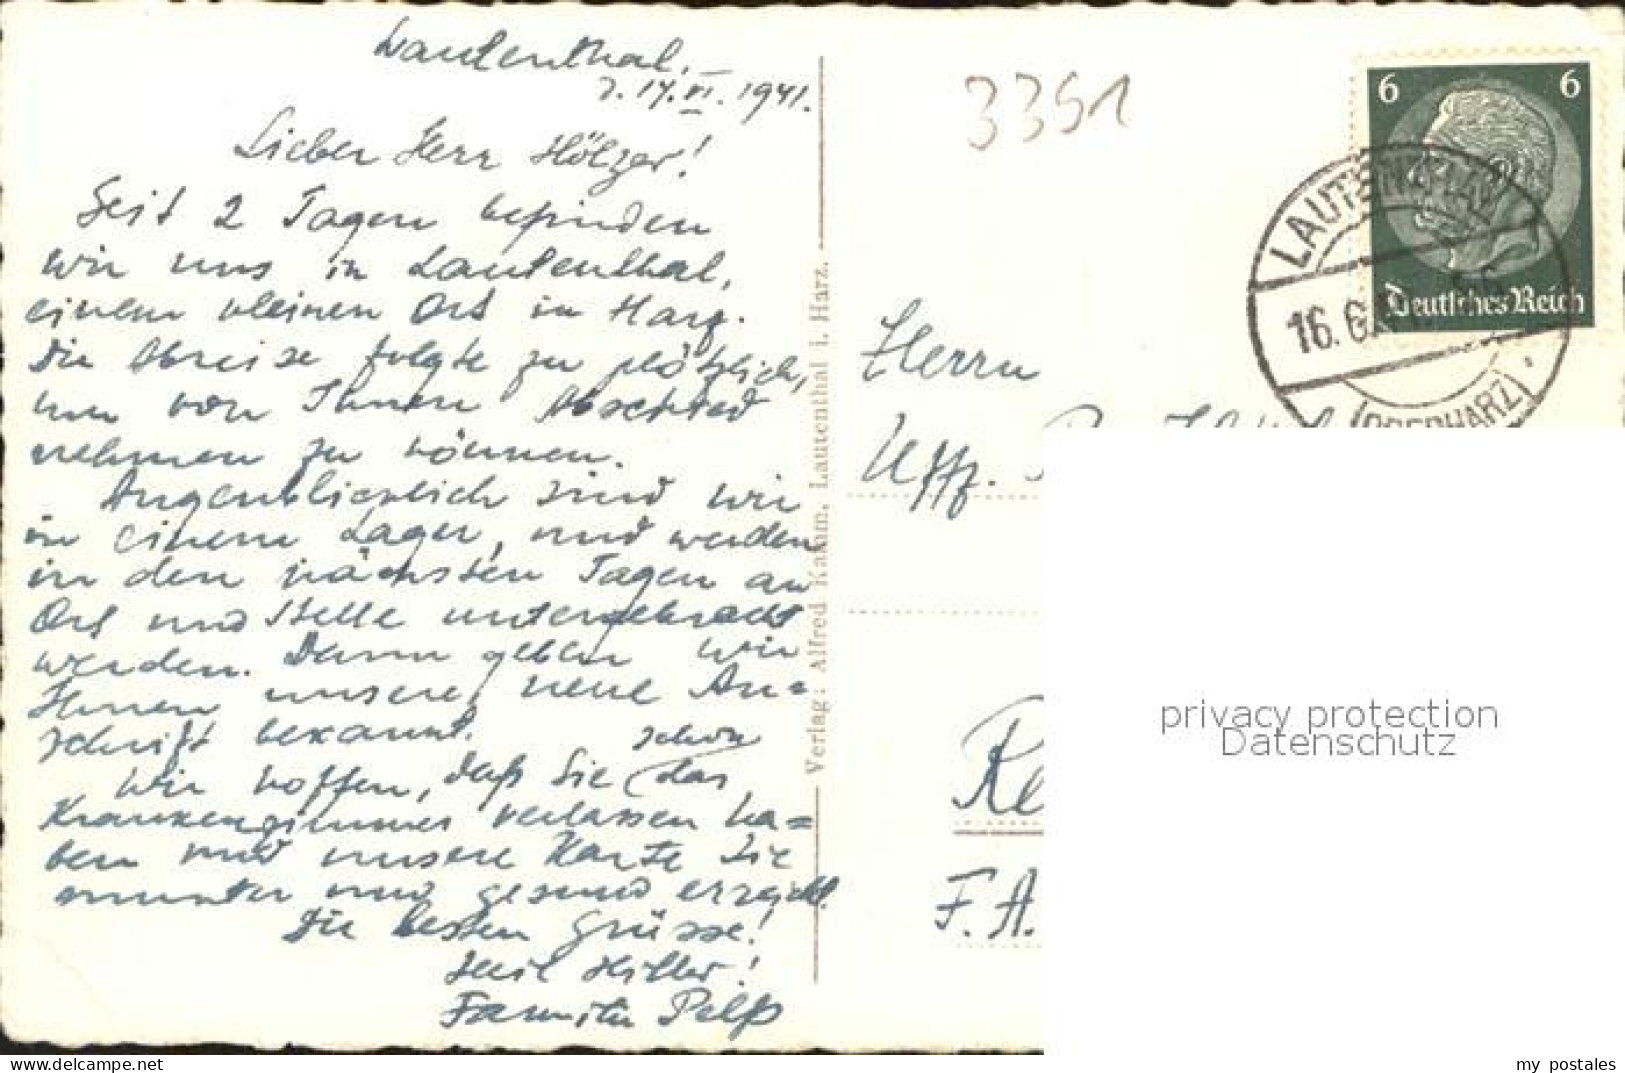 Lautenthal,
d. 14. VI. 1941.
Lieber Herr Hölzer!
Seit 2 Tagen befinden
wir uns in Lautenthal,
einem kleinen Ort im Harz.
Die Abreise folgte zu plötzlich,
um von Ihnen Abschied
nehmen zu können.
Augenblicklich sind wir
in einem Lager, und werden
in den nächsten Tagen an
Ort und Stelle untergebracht
werden. Dann geben wir
Ihnen unsere neue An=
schrift bekannt.
Wir hoffen, daß Sie schon das
Krankenzimmer verlassen ha=
ben und unsere Karte Sie
munter und gesund erreicht.
Die besten Grüsse!
Heil Hitler!
Familie Pelß
Verlag: Alfred Kamm, Lautenthal i. Harz.
3351
6 6
Deutsches Reich
LAUTENTHAL
16. 6.
(OBERHARZ)
Herrn
Uffz.
F. A.
privacy protection
Datenschutz
my postales